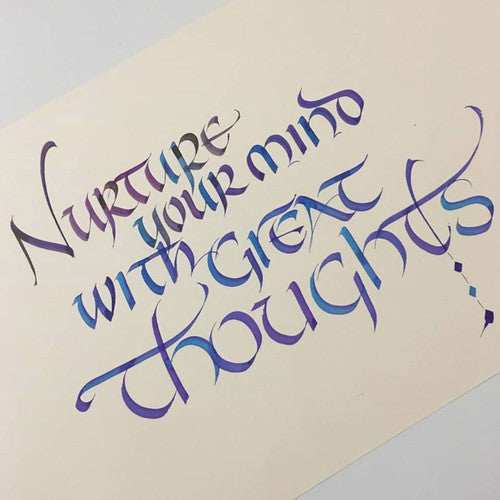 Nurture
your mind
with great
thoughts